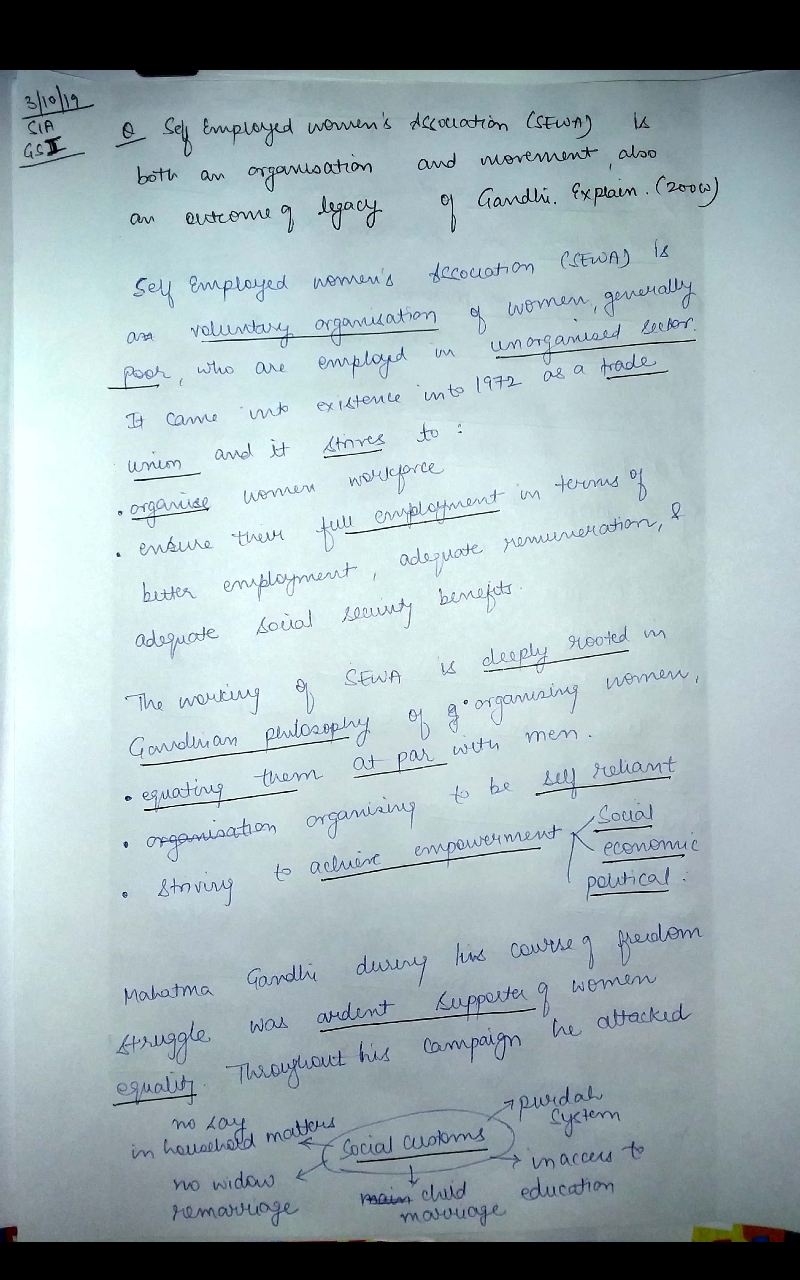 3/10/19
SIA
GS II
Q Self Employed women's Association (SEWA) is
both an organisation and movement, also
an outcome of legacy of Gandhi. Explain. (200W)
Self Employed women's Association (SEWA) is
an voluntary organisation of women, generally
poor, who are employed in unorganised sector.
It came into existence into 1972 as a trade
union and it strives to :
• organise women workforce
• ensure their full employment in terms of
better employment, adequate remuneration, &
adequate social security benefits.
The working of SEWA is deeply rooted in
Gandhian philosophy of organising women,
• equating them at par with men.
• organisation organising to be self reliant
• striving to achieve empowerment
Social
economic
political.
Mahatma Gandhi during his course of freedom
struggle was ardent supporter of women
equality. Throughout his campaign he attacked
Social customs
purdah
system
inaccess to
education
main child
marriage
no widow
remarriage
no say
in household matters